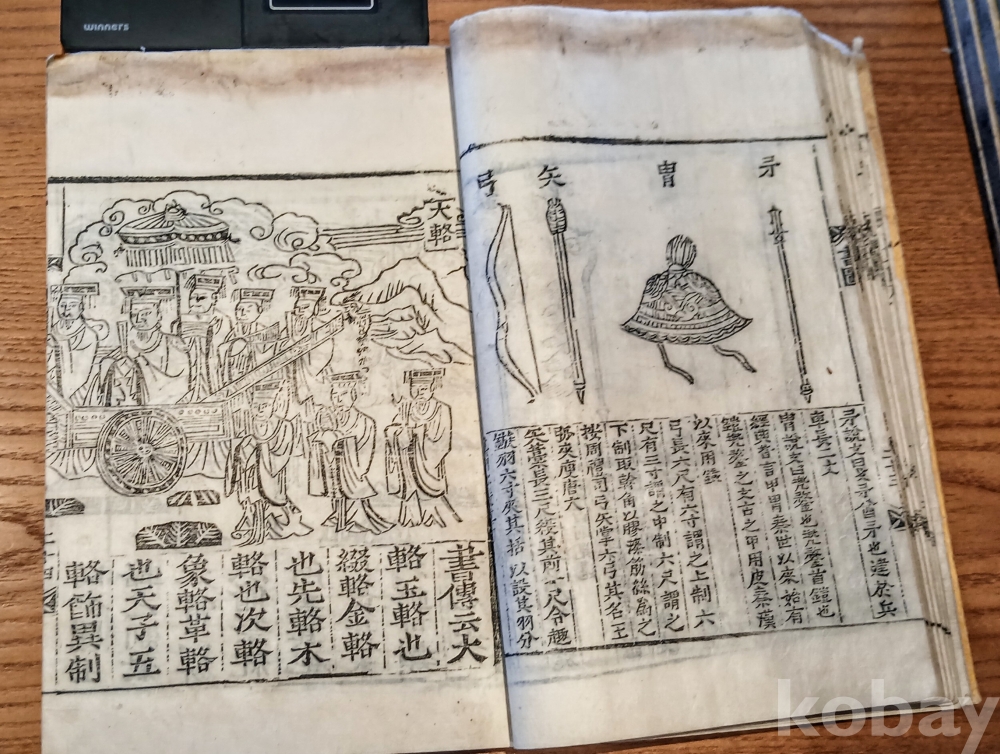 矛
胄
矢
弓
矛說文曰矛酋矛也建於兵
車長二丈
胄說文曰兜鍪也兜鍪首鎧也
經典皆言甲胄秦世以來始有
鎧兜鍪之文古之甲用皮秦漢
以來用鐵
弓長六尺有六寸謂之上制六
尺有三寸謂之中制六尺謂之
下制取幹角以膠漆筋絲為之
按周禮司弓矢掌六弓其名王
弧夾庾唐大
矢藁長三尺殺其前一尺令趣
鏃羽六寸夾其括以設其羽分
大輅
書傳云大
輅玉輅也
綴輅金輅
也先輅木
輅也次輅
象輅革輅
也天子五
輅飾異制
winners
kobay